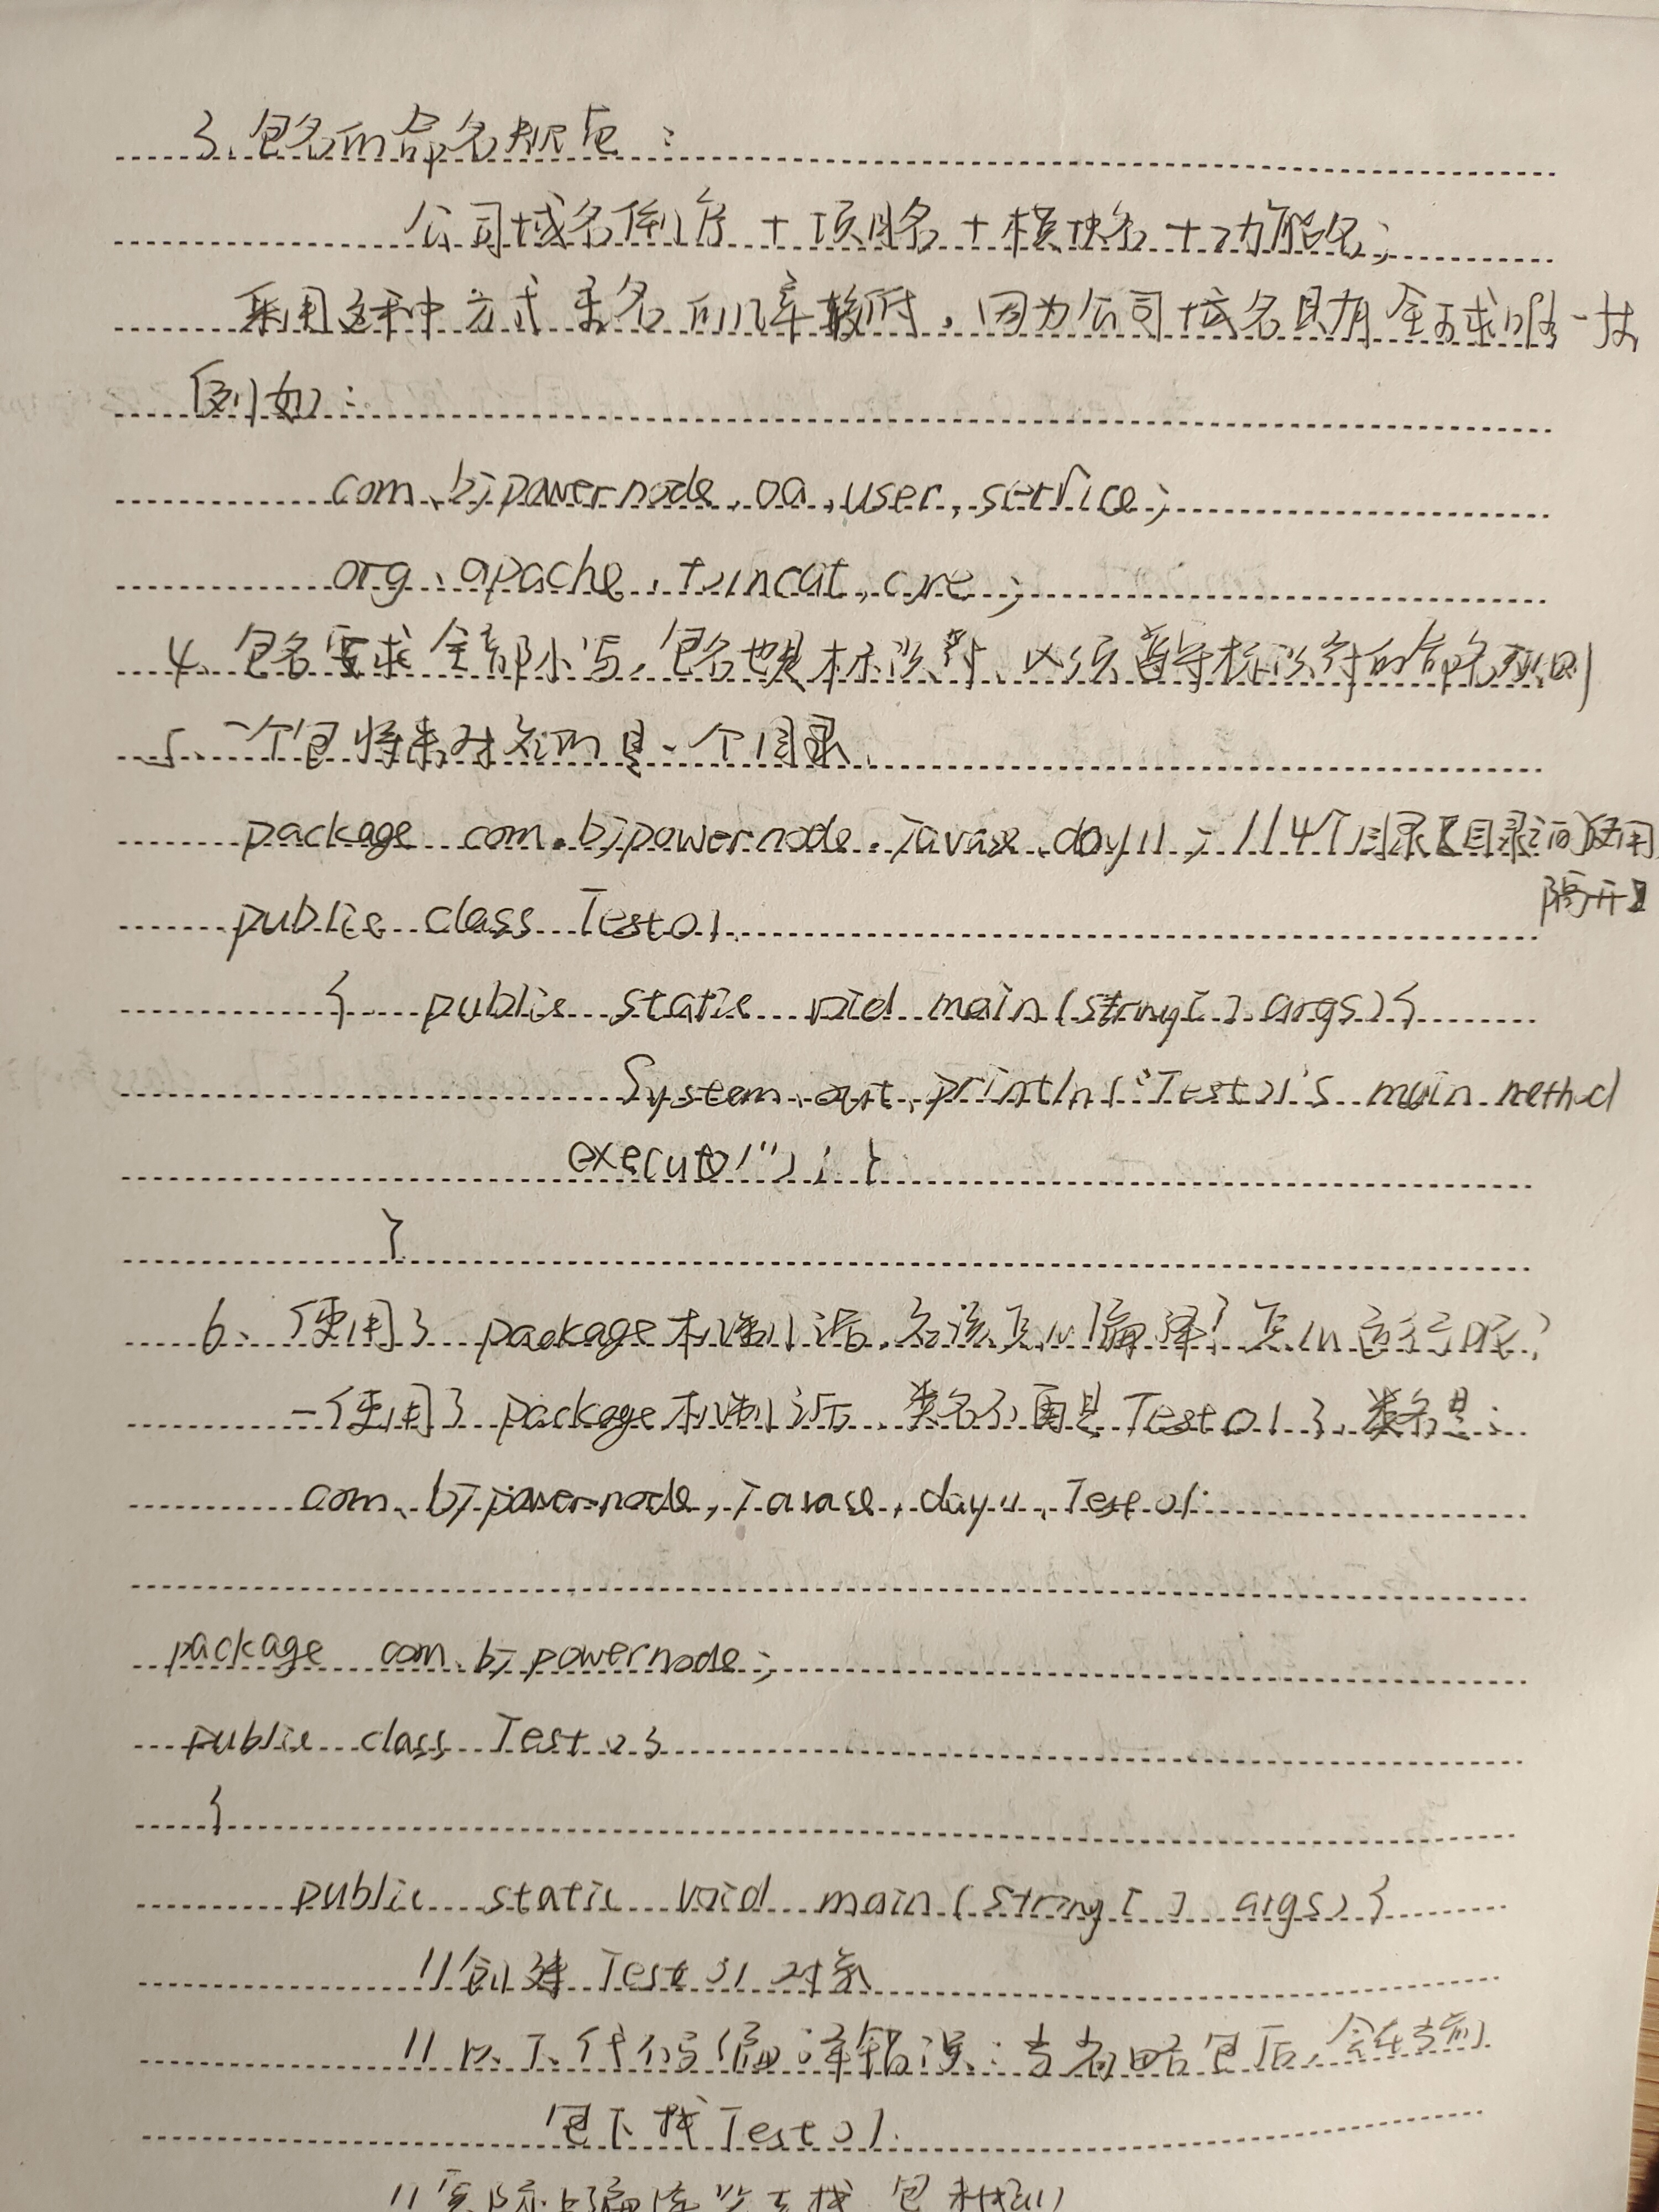 3、包名的命名规范：
公司域名倒序 + 项目名 + 模块名 + 功能名；
采用这种方式重名的几率较低，因为公司域名具有全球唯一性
例如：
com.bjpowernode.oa.user.service;
org.apache.tomcat.core;
4、包名要求全部小写，包名也是标识符，必须遵守标识符的命名规则
5、一个包将来对应的是一个目录
package com.bjpowernode.javase.day11; //4个目录【目录之间使用.
隔开】
public class Test01
{ public static void main(String[] args){
System.out.println("Test01's main method
execute!"); }
}
6、使用了package机制后，应该怎么编译？怎么运行呢？
-使用了package机制后，类名不再是Test01了，类名是：
com.bjpowernode.javase.day11.Test01
package com.bjpowernode;
public class Test03
{
public static void main(String[] args){
//创建Test01对象
//以下代码编译错误：当省略包后，会在当前
包下找Test01.